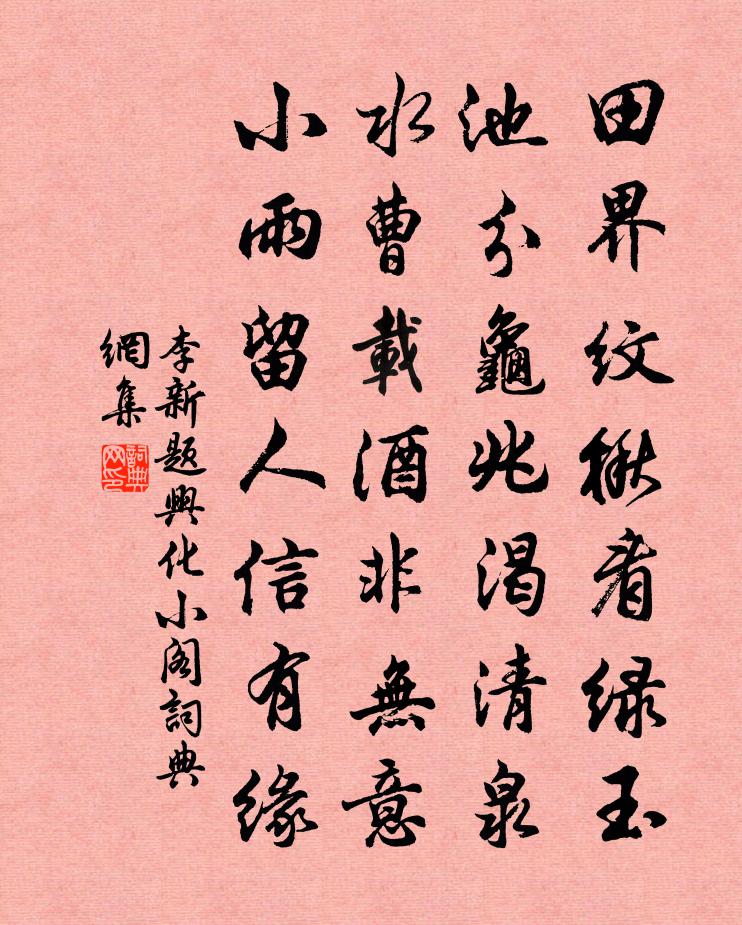 田界紋楸看緑玉
池分龜兆渴清泉
水曹載酒非無意
小雨留人信有緣
李新題興化小阁詞典
網集
詞典
网印